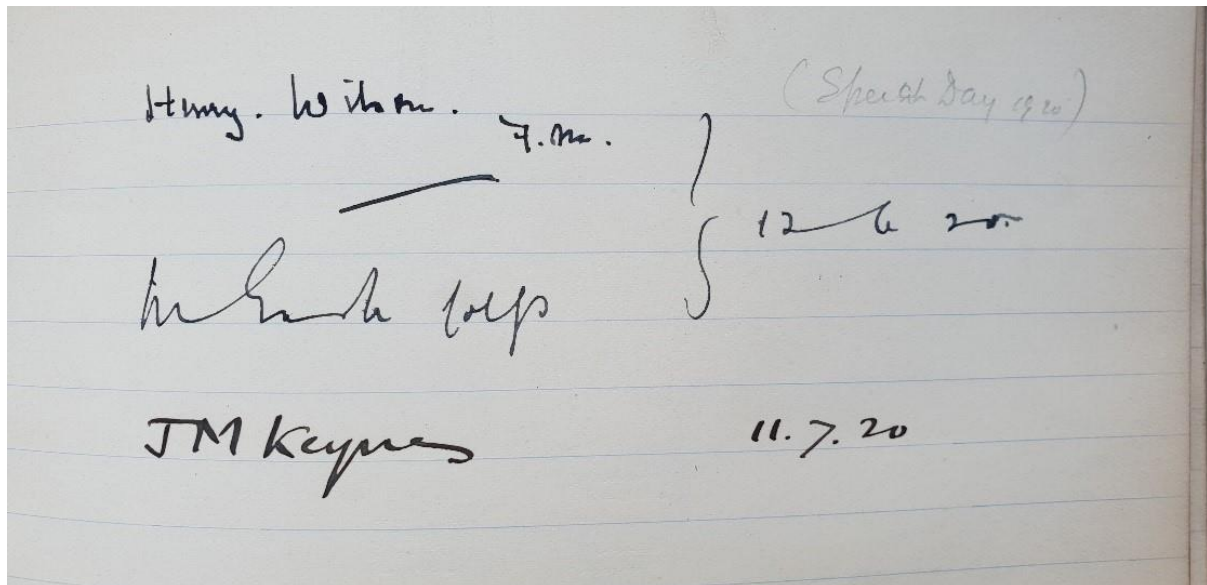 Henry. Wilson.
(Speech Day 1920)
F.M.
12 6 20.
JM Keynes
11.7.20